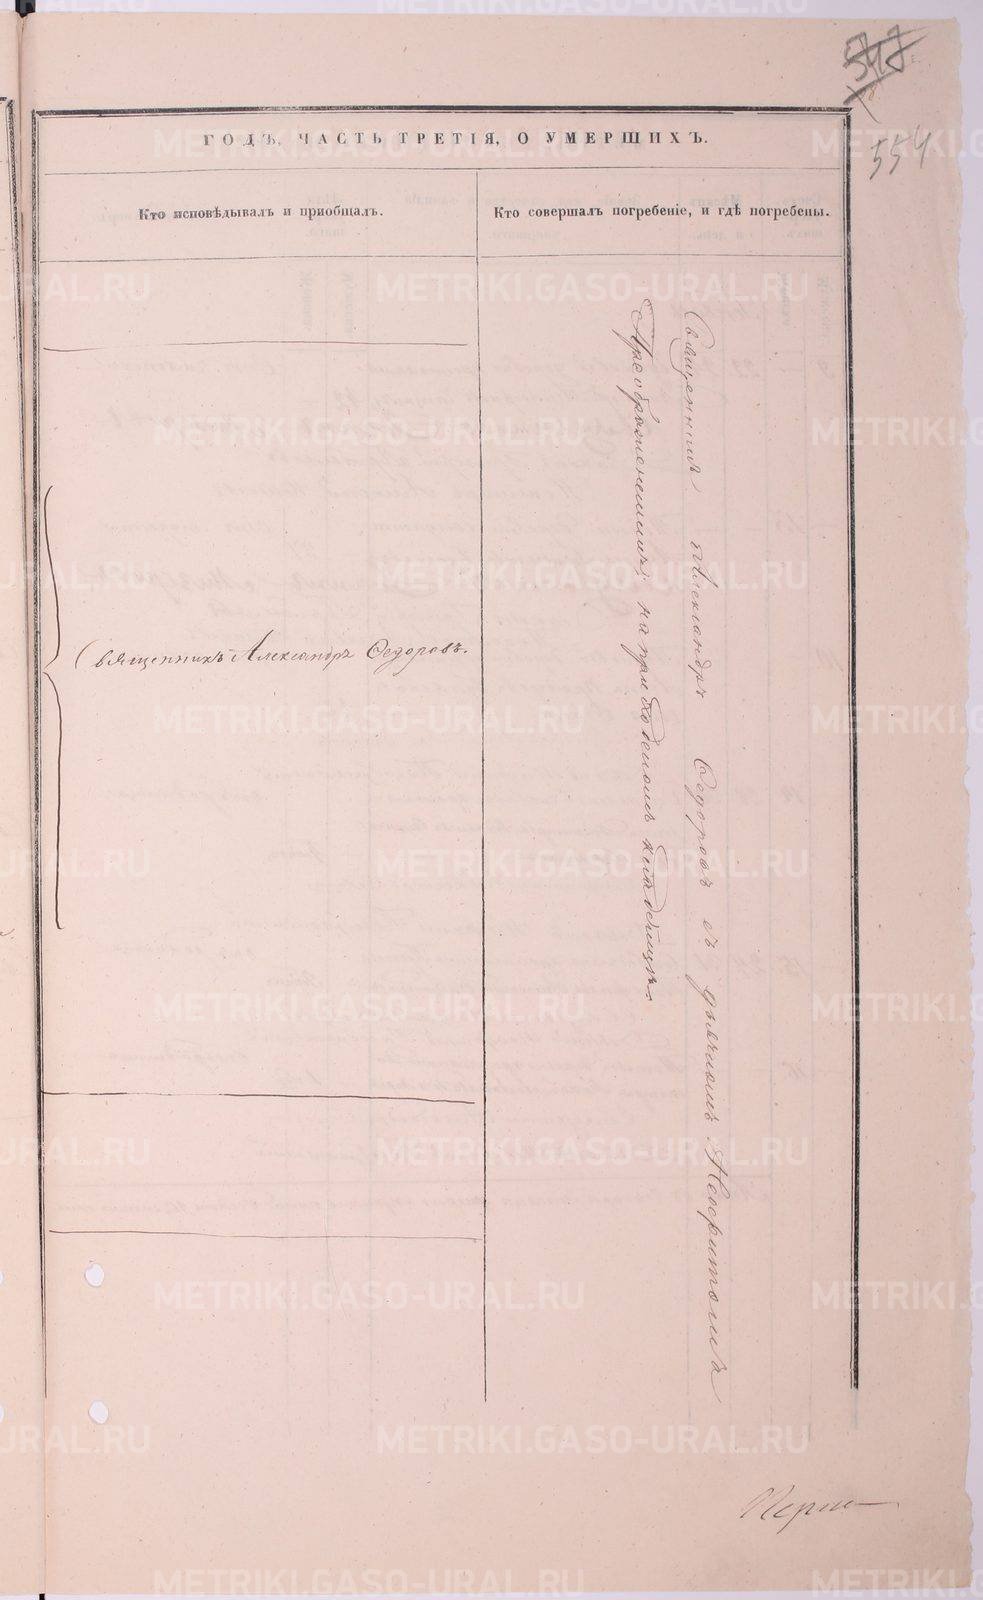 547
554
ГОДЪ, ЧАСТЬ ТРЕТІЯ, О УМЕРШИХЪ.
Кто исповѣдывалъ и пріобщалъ.
Кто совершалъ погребеніе, и гдѣ погребены.
Священникъ Александръ Ѳедоровъ.
Священникъ Александръ Ѳедоровъ съ дьячкомъ Неофитомъ
на приходскомъ кладбищѣ.
METRIKI.GASO-URAL.RU